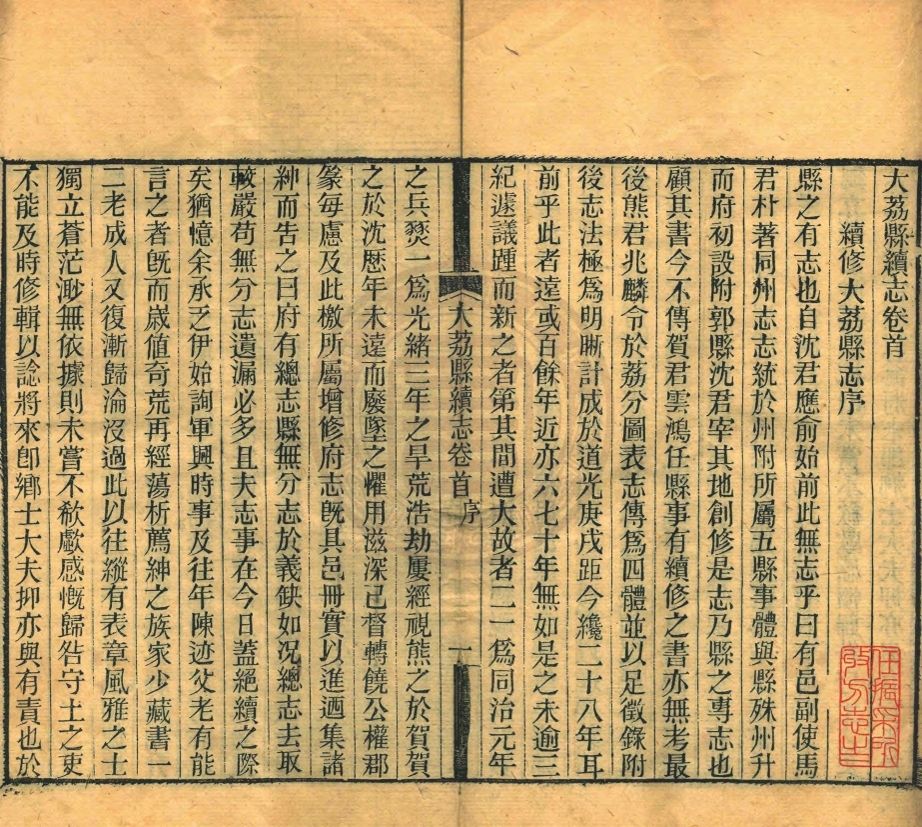 大荔縣續志卷首
續修大荔縣志序
縣之有志也自沈君應俞始前此無志乎曰有邑副使馬
君朴著同州志志統於州附所屬五縣事體與縣殊州升
而府初設附郭縣沈君宰其地創修是志乃縣之專志也
顧其書今不傳賀君雲鴻任縣事有續修之書亦無考最
後熊君兆麟令於荔分圖表志傳爲四體並以足徵錄附
後志法極爲明晰計成於道光庚戌距今纔二十八年耳
前乎此者遠或百餘年近亦六七十年無如是之未逾三
紀遽議踵而新之者第其間遭大故者二一爲同治元年
大荔縣續志卷首 序 一
之兵燹一爲光緒三年之旱荒浩劫屢經視熊之於賀賀
之於沈歷年未遠而廢墜之懼用滋深已督轉饒公權郡
篆每慮及此檄所屬增修府志旣具邑冊實以進迺集諸
紳而告之曰府有總志縣無分志於義缺如况總志去取
較嚴苟無分志遺漏必多且夫志事在今日蓋絕續之際
矣猶憶余承乏伊始詢軍興時事及往年陳迹父老有能
言之者旣而歲值奇荒再經蕩析薦紳之族家少藏書一
二老成人又復漸歸淪沒過此以往縱有表章風雅之士
獨立蒼茫渺無依據則未嘗不欷歔感慨歸咎守土之吏
不能及時修輯以諗將來卽鄉士大夫抑亦與有責也於